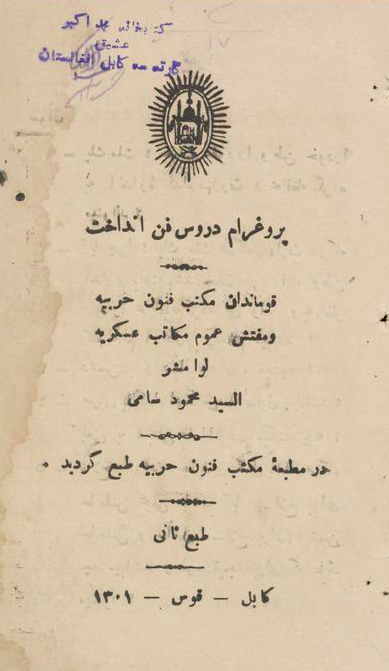 کتابخانه محمد اکبر
عشیق
کارته سه کابل افغانستان
پروغرام دروس فن انداخت
قوماندان مکتب فنون حربیه
ومفتش عموم مکاتب عسکریه
لوا مشر
السید محمود سامی
در مطبعهٔ مکتب فنون حربیه طبع گردید .
طبع ثانی
کابل – قوس – ۱۳۰۱